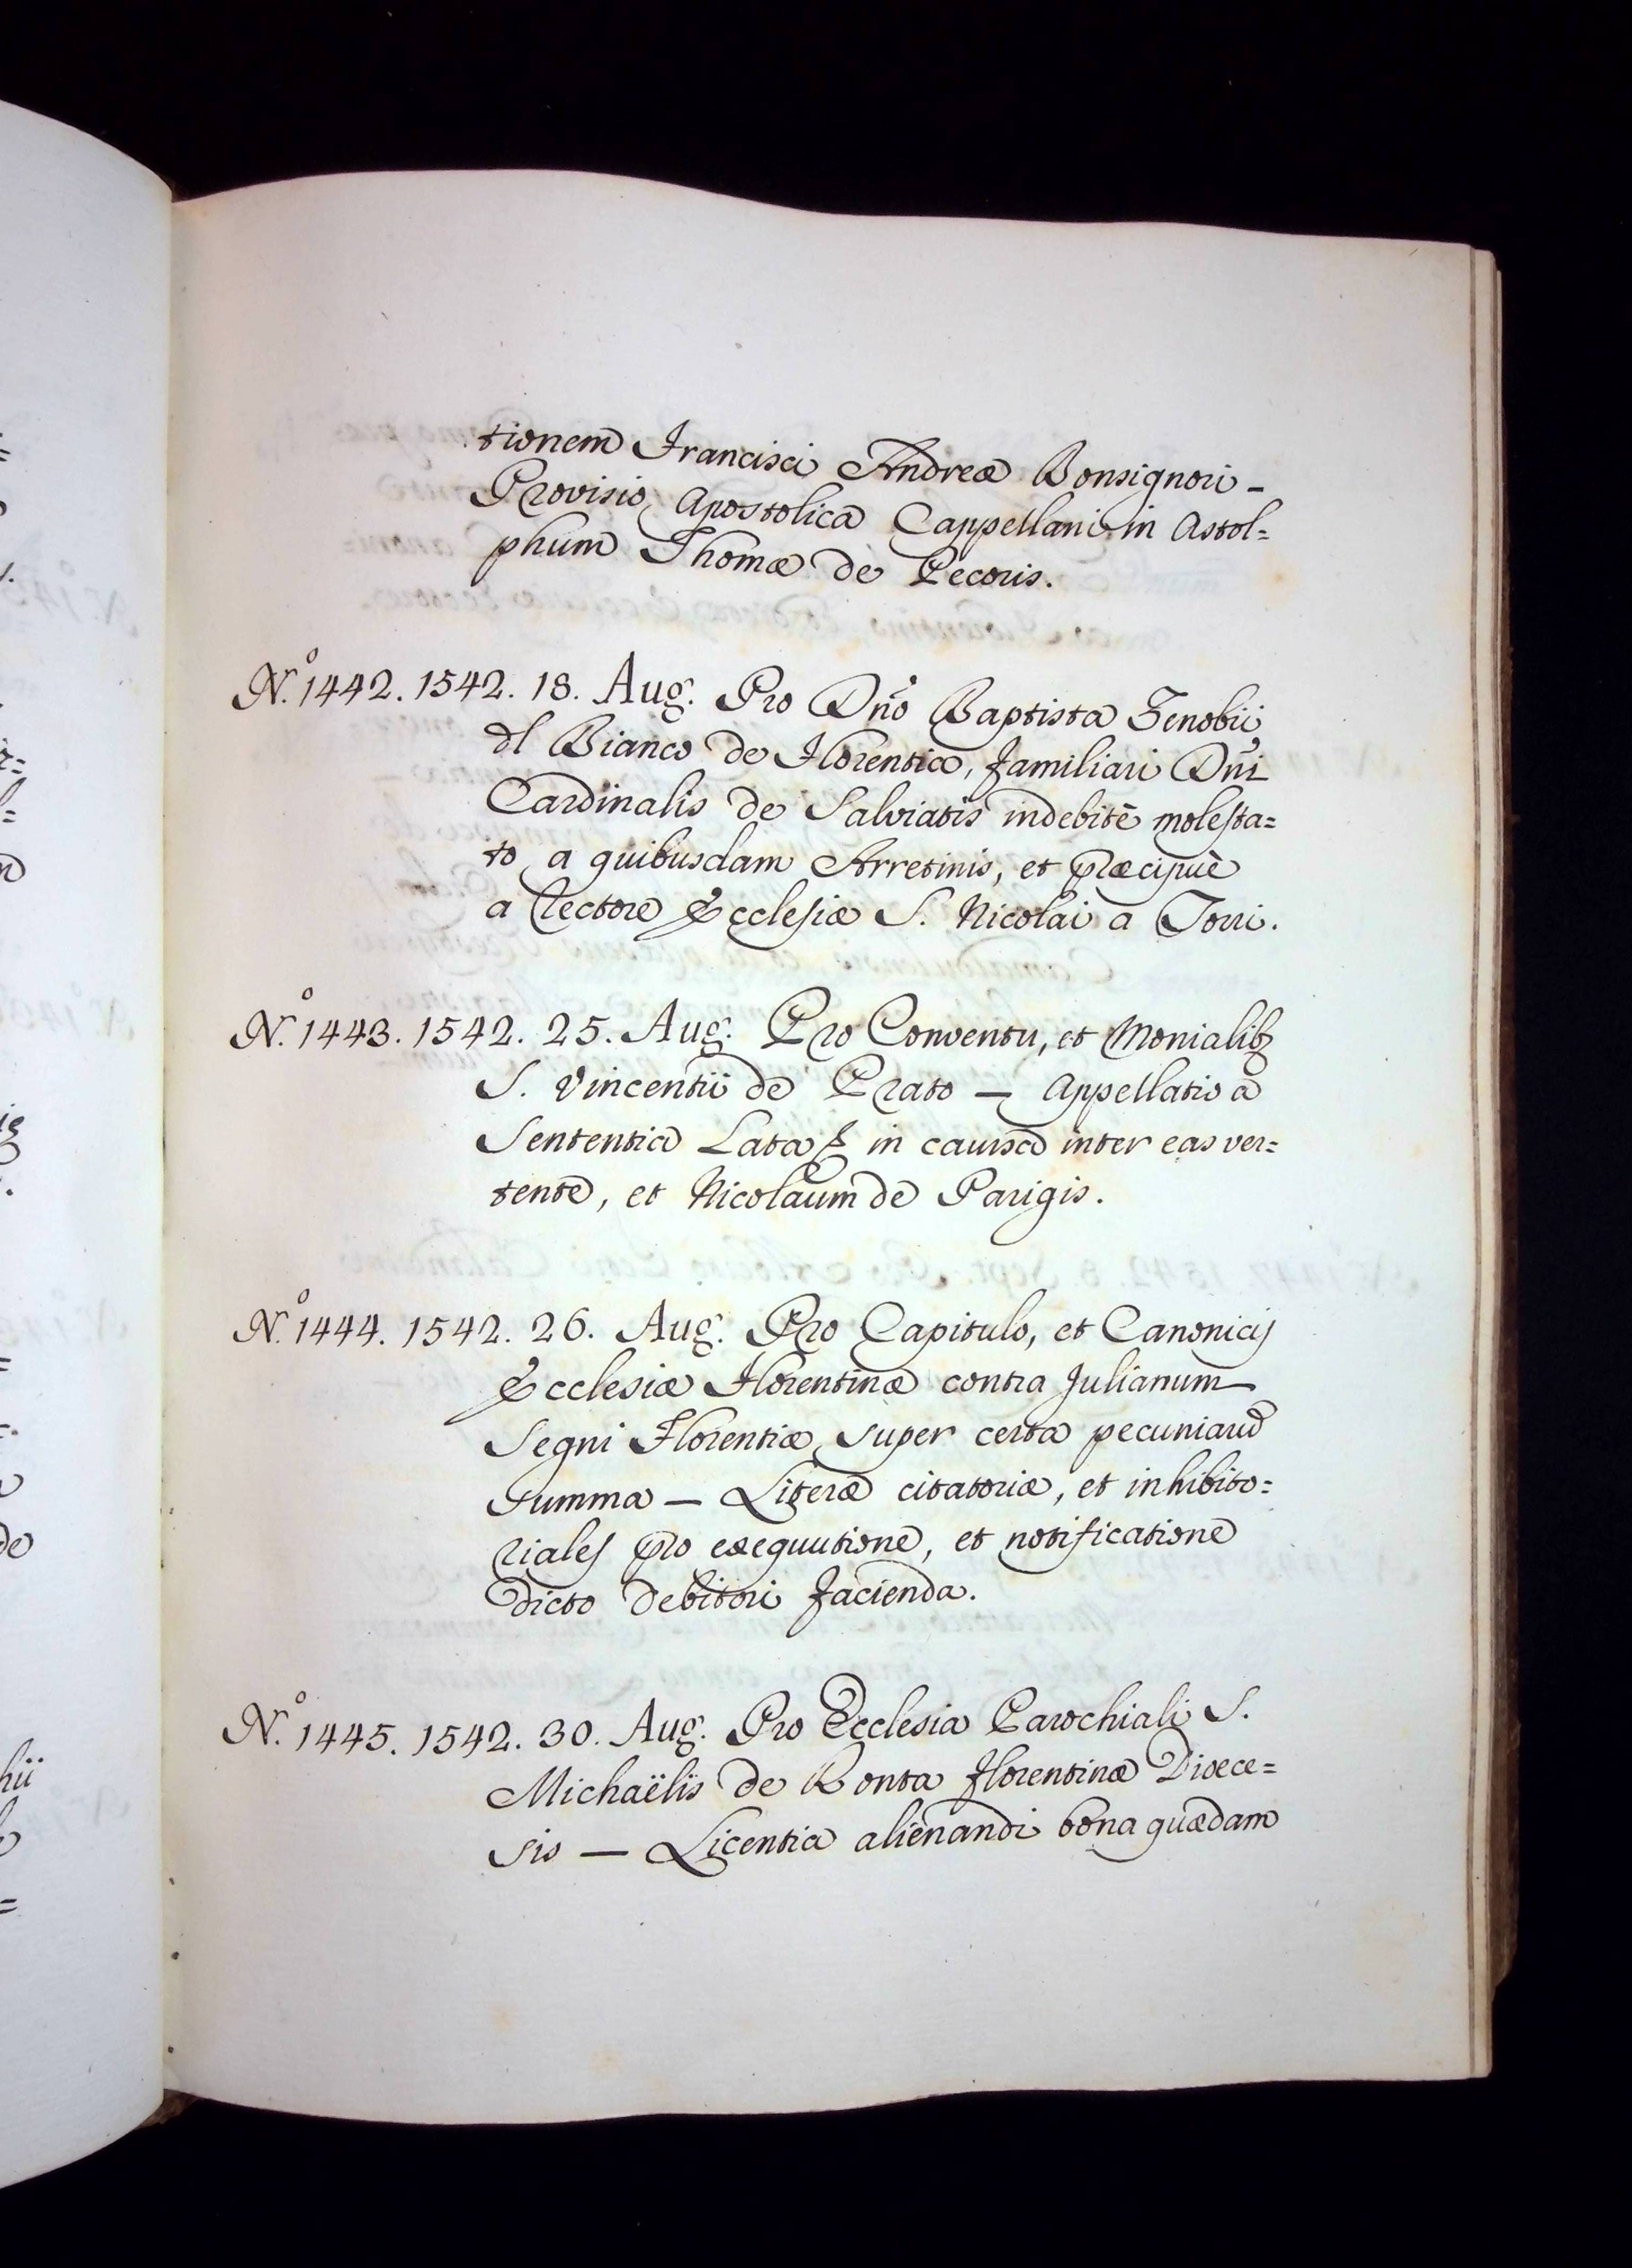 tionem Francisci Andreæ Bonsignori -
Provisio Apostolica Cappellani in Astol=
phum Thomæ de Pecoris.
N.º 1442. 1542. 18. Aug. Pro Dño Baptista Zenobii
dl Bianco de Florentia, familiari Dñi
Cardinalis de Salviatis indebitè molesta=
to a quibusdam Arretinis, et præcipuè
a Rectore Ecclesiæ S. Nicolai a Torri.
N.º 1443. 1542. 25. Aug. Pro Conventu, et Monialibꝫ
S. Vincentii de Prato — Appellatio a
Sententia Lata in causa inter eas ver=
tente, et Nicolaum de Parigis.
N.º 1444. 1542. 26. Aug. Pro Capitulo, et Canonicis
Ecclesiæ Florentinæ contra Julianum
Segni Florentiæ super certa pecuniarũ
summa — Literæ citatoriæ, et inhibito=
riales pro exequutione, et notificatione
dicto debitori facienda.
N.º 1445. 1542. 30. Aug. Pro Ecclesia Parochiali S.
Michaëlis de Ronta florentinæ Diœce=
sis — Licentia alienandi bona quædam